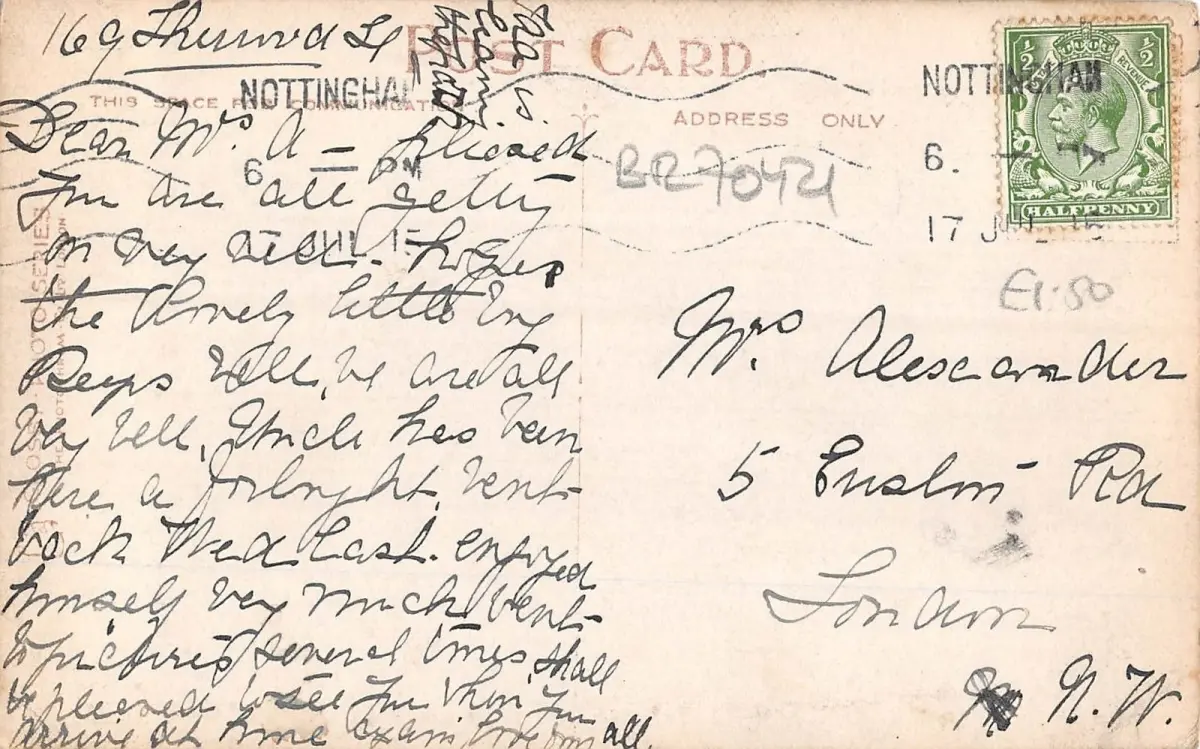 169 Sherwood St
POST CARD.
THIS SPACE FOR COMMUNICATION
ADDRESS ONLY
NOTTINGHAM
6 PM
17 JUL 15
NOTTINGHAM
6.
17 JUL 15
HALFPENNY
½ ½
REVENUE
BR70421
£1.50
Dear Mrs A – pleased
you are all getting
on very well.
the lovely little
Peeps Well, we are all
very well, Uncle has been
here a fortnight, went
back Wed last. enjoyed
himself very much, went
to pictures several times, shall
be pleased to see you when you
arrive at home again, love from all.
Mrs. Alexander
5 Euston Rd
London
N.W.